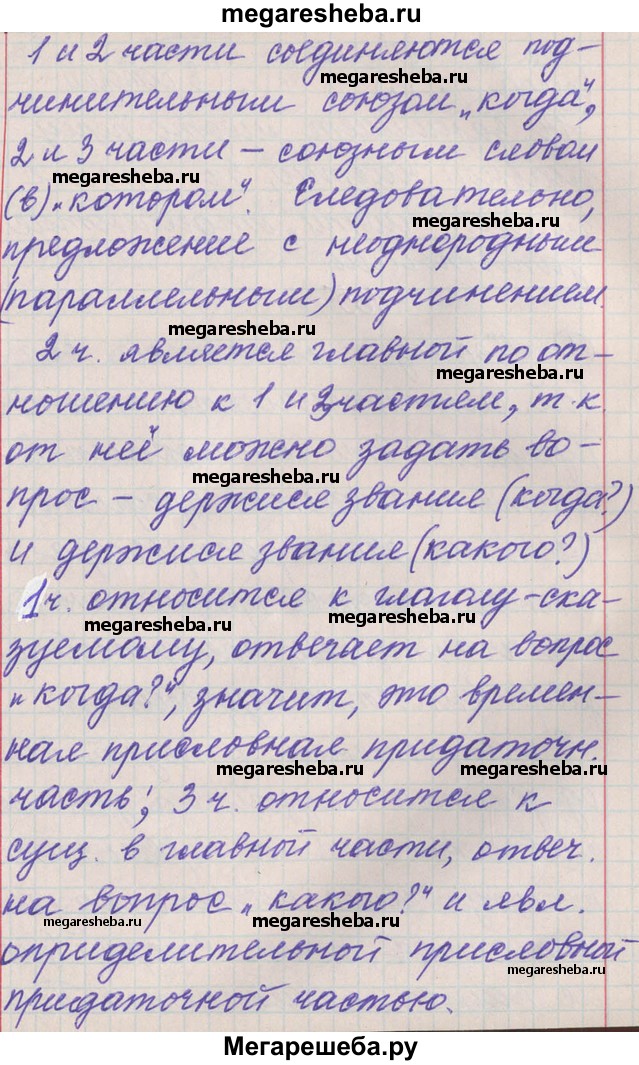 megaresheba.ru
1 и 2 части соединяются под-
megaresheba.ru
чинительным союзом „когда",
2 и 3 части – союзным словом
megaresheba.ru
(в) „котором". Следовательно,
megaresheba.ru
предложение с неоднородным
(параллельным) подчинением.
megaresheba.ru
2 ч. является главной по от-
megaresheba.ru
ношению к 1 и 3 частям, т.к.
от неё можно задать во-
megaresheba.ru
прос – держися звания (когда?)
и держися звания (какого?)
1 ч. относится к глаголу-ска-
megaresheba.ru megaresheba.ru
зуемому, отвечает на вопрос
„когда?", значит, это времен-
ная присловная придаточн.
megaresheba.ru megaresheba.ru
часть; 3 ч. относится к
сущ. в главной части, отвеч.
на вопрос „какого?" и явл.
megaresheba.ru megaresheba.ru
оприделительной присловной
megaresheba.ru
придаточной частью.
Мегарешеба.ру